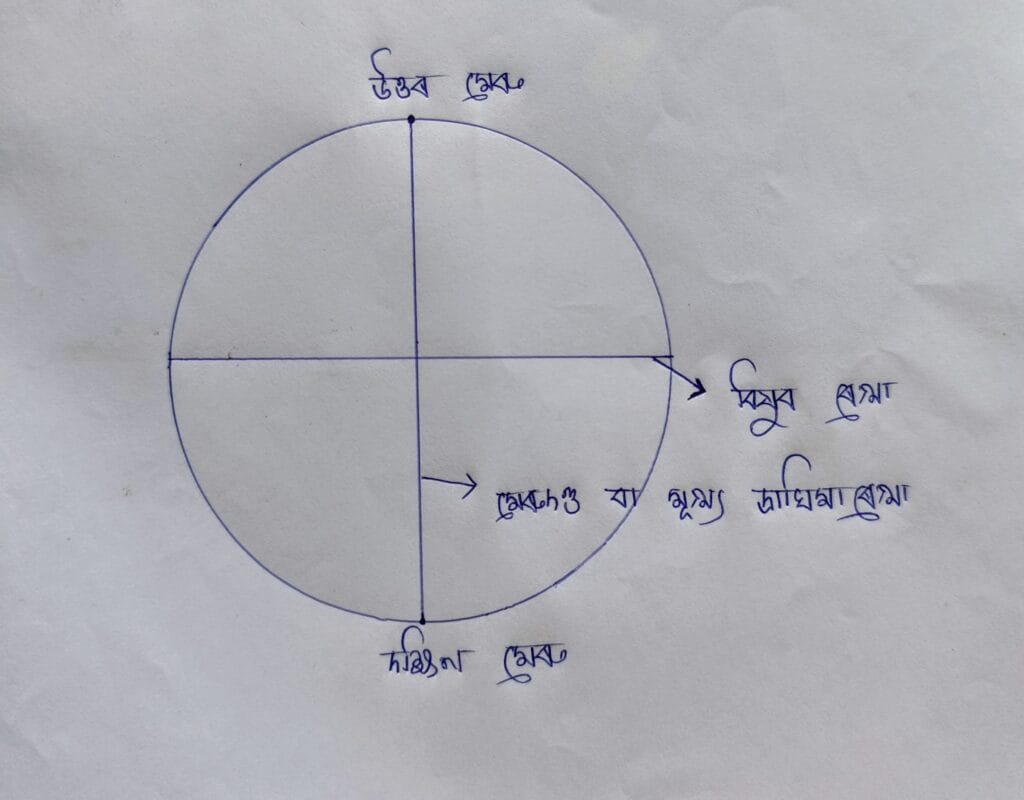 উত্তৰ মেৰু
বিষুব ৰেখা
মেৰুদণ্ড বা মূখ্য দ্ৰাঘিমা ৰেখা
দক্ষিণ মেৰু